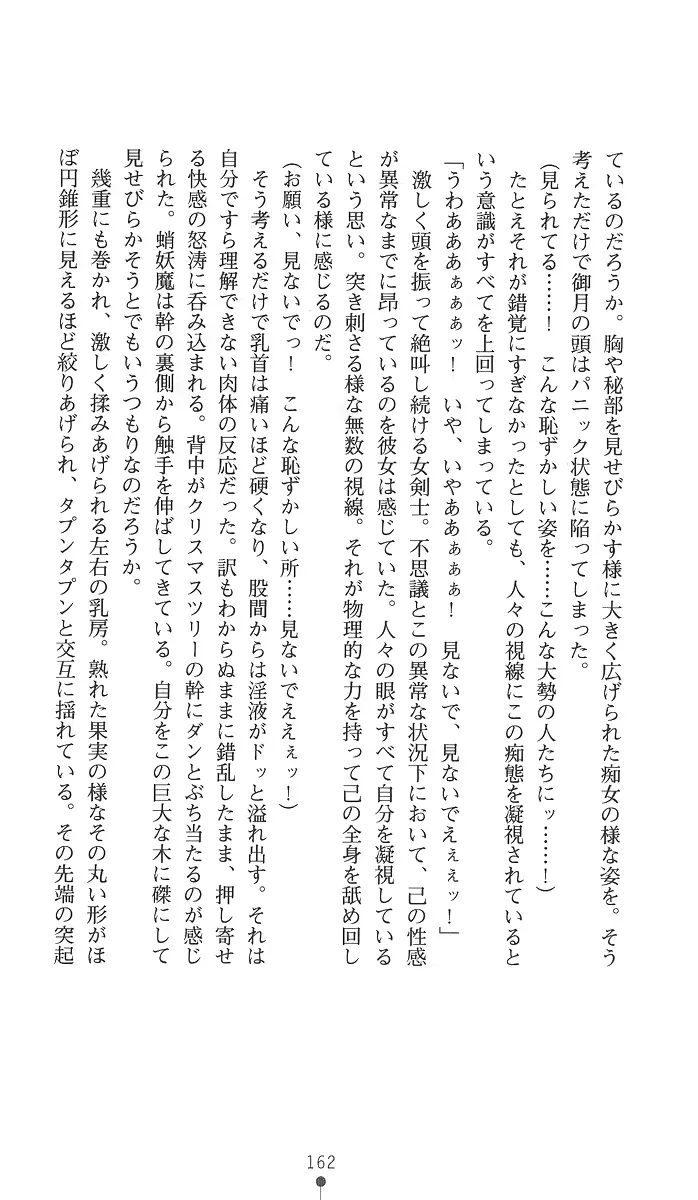 ているのだろうか。胸や秘部を見せびらかす様に大きく広げられた痴女の様な姿を。そう
考えただけで御月の頭はパニック状態に陥ってしまった。
（見られてる……！　こんな恥ずかしい姿を……こんな大勢の人たちにッ……！）
　たとえそれが錯覚にすぎなかったとしても、人々の視線にこの痴態を凝視されていると
いう意識がすべてを上回ってしまっている。
「うわあああぁぁぁッ！　いや、いやああぁぁぁ！　見ないで、見ないでえぇぇッ！」
　激しく頭を振って絶叫し続ける女剣士。不思議とこの異常な状況下において、己の性感
が異常なまでに昂っているのを彼女は感じていた。人々の眼がすべて自分を凝視している
という思い。突き刺さる様な無数の視線。それが物理的な力を持って己の全身を舐め回し
ている様に感じるのだ。
（お願い、見ないでっ！　こんな恥ずかしい所……見ないでええぇッ！）
　そう考えるだけで乳首は痛いほど硬くなり、股間からは淫液がドッと溢れ出す。それは
自分ですら理解できない肉体の反応だった。訳もわからぬままに錯乱したまま、押し寄せ
る快感の怒涛に呑み込まれる。背中がクリスマスツリーの幹にダンとぶち当たるのが感じ
られた。蛸妖魔は幹の裏側から触手を伸ばしてきている。自分をこの巨大な木に磔にして
見せびらかそうとでもいうつもりなのだろうか。
　幾重にも巻かれ、激しく揉みあげられる左右の乳房。熟れた果実の様なその丸い形がほ
ぼ円錐形に見えるほど絞りあげられ、タプンタプンと交互に揺れている。その先端の突起
162